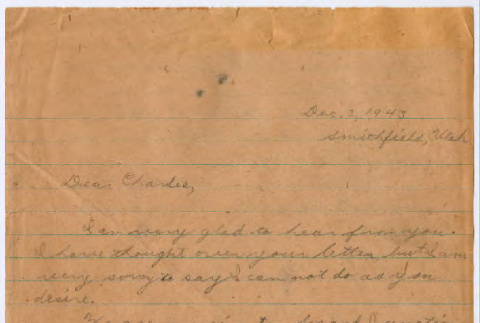 Dec. 3, 1943
Smithfield, Utah
Dear Charlie,
I am very glad to hear from you.
I have thought over your letter, but I am
very sorry to say I can not do as you
desire.